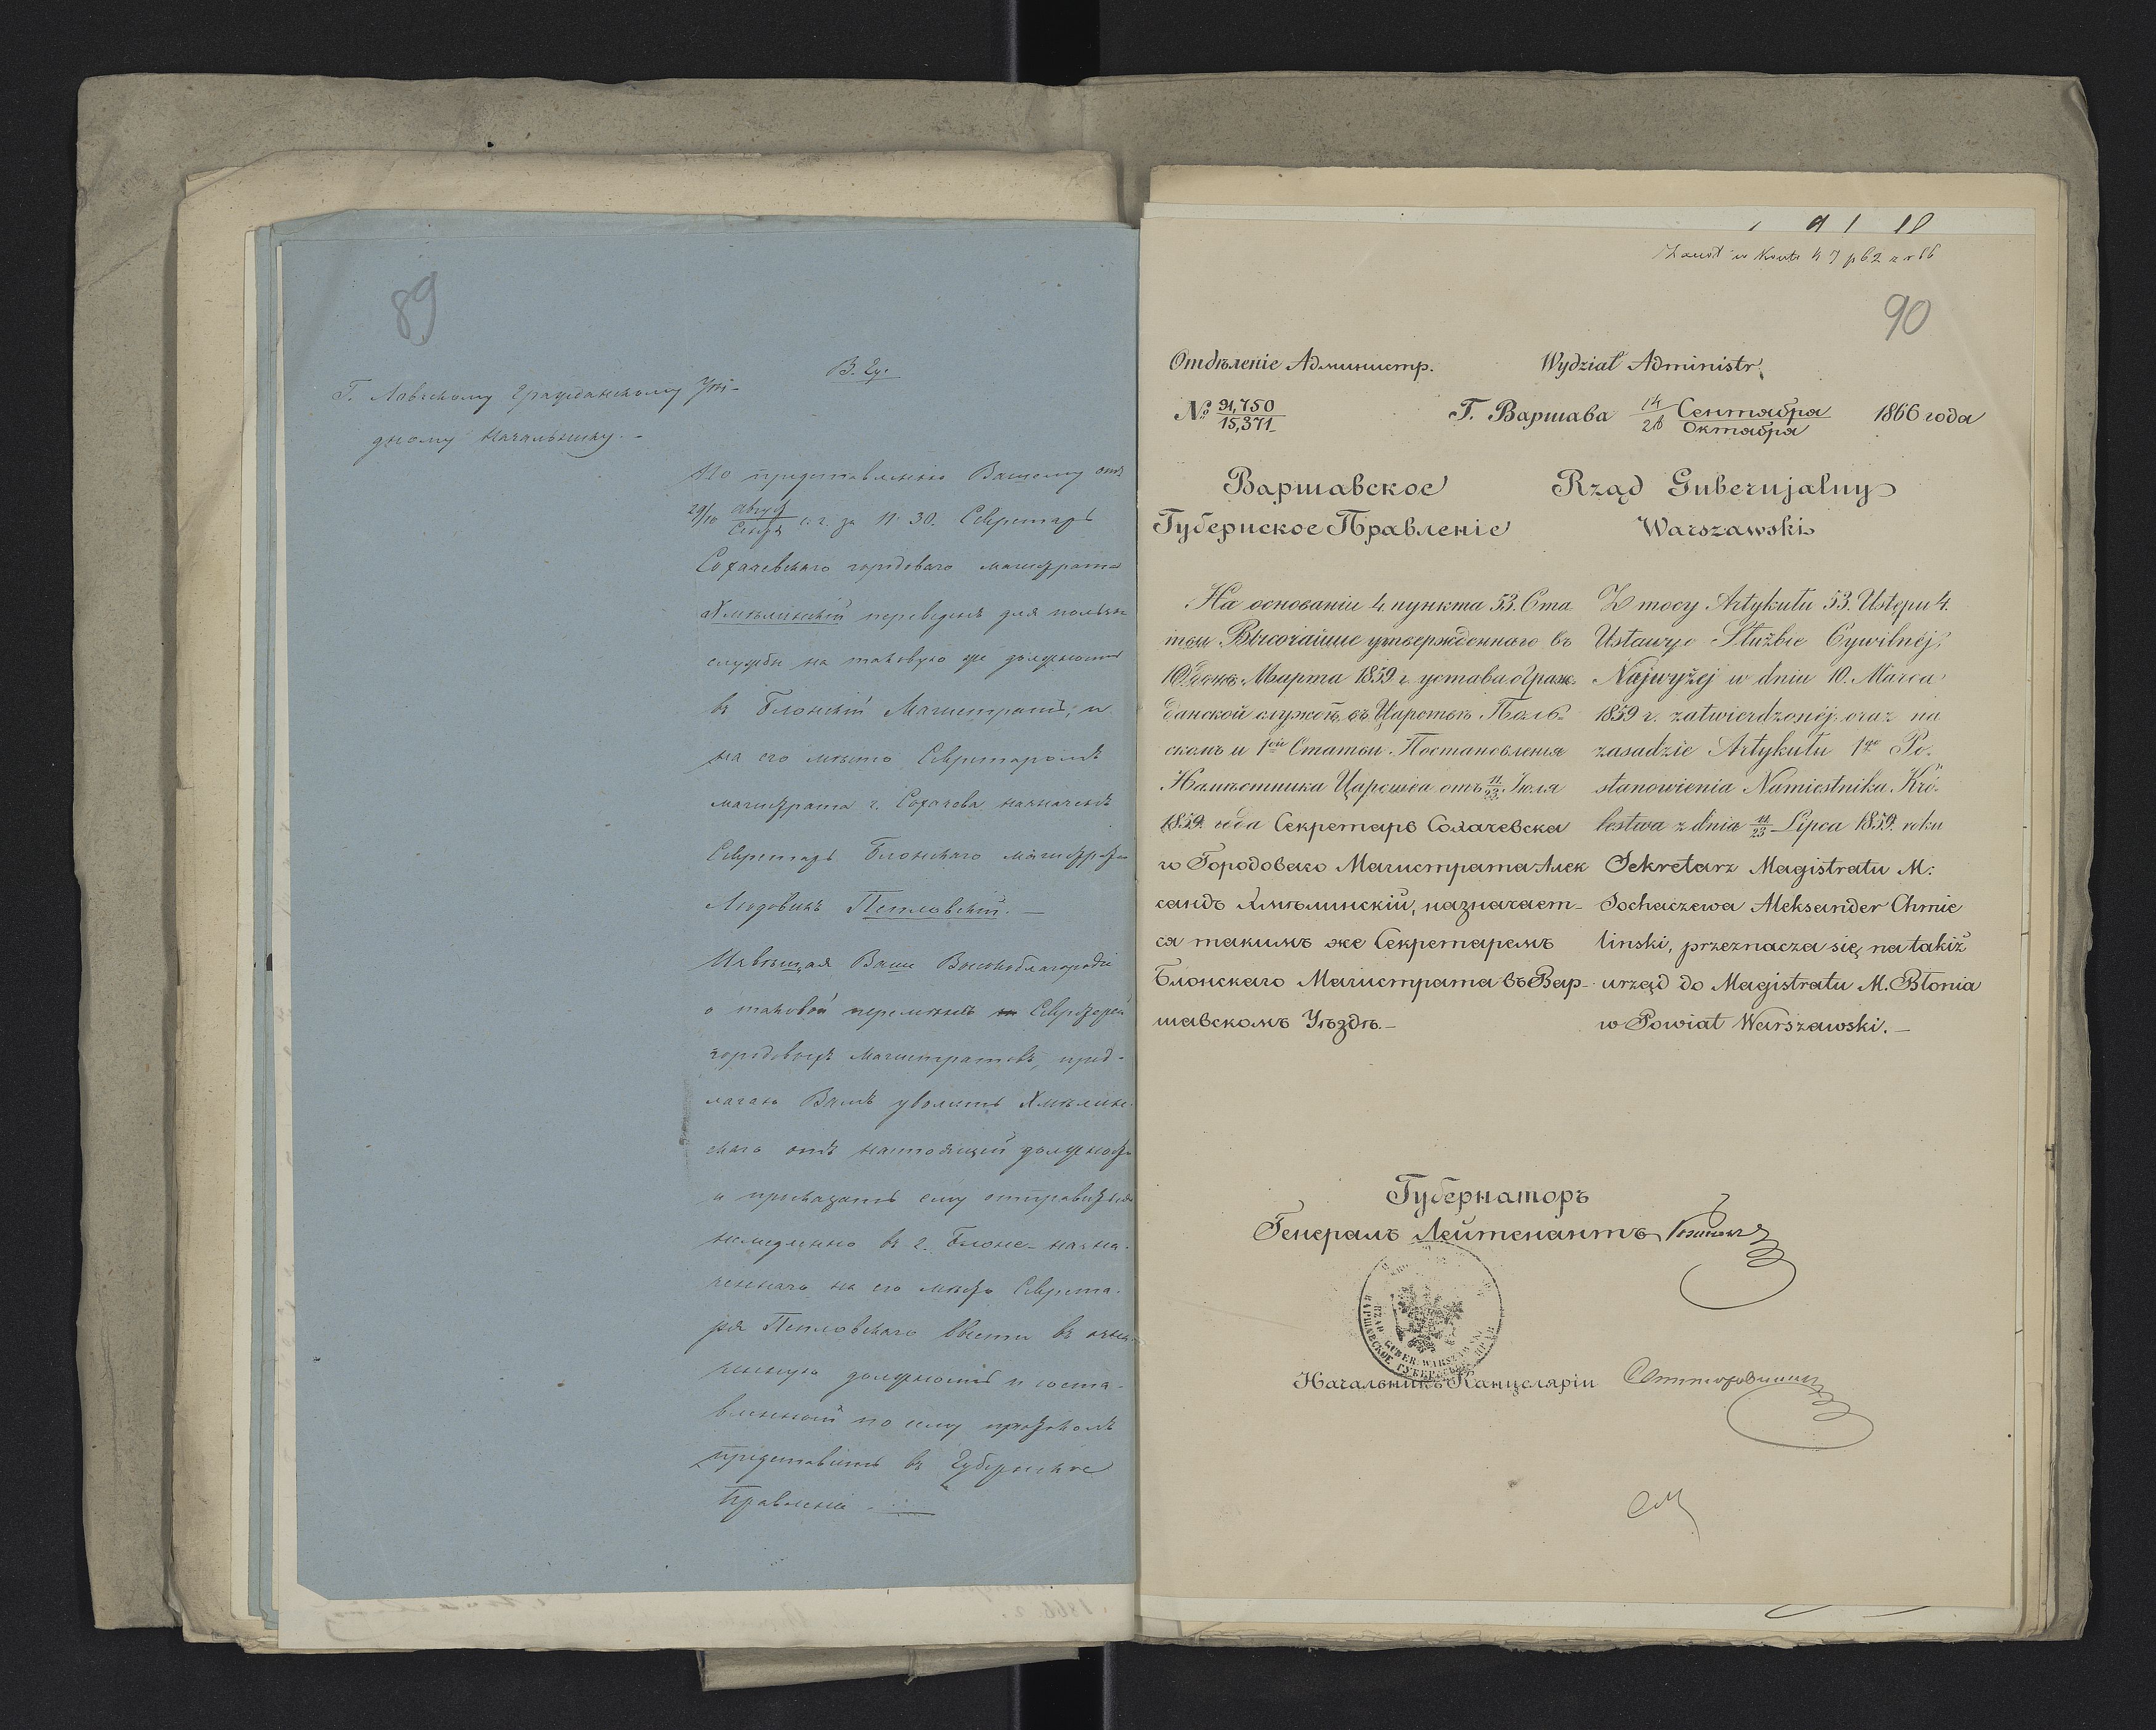 89
В. Гу.
Г. Ловичскому Гражданскому Уѣз-
дному Начальнику.-
По представленію Вашему отъ
29/10 Август/Сентр с. г. за № 30. Секретарь
Сохачевскаго городоваго магистрата
Хмѣлинскій переведенъ для пользы
службы на таковую же должность
въ Блонскій Магистратъ, и
на его мѣсто Секретаремъ
магистрата г. Сохачева назначенъ
Секретарь Блонскаго Магистрата
Людовикъ Петловскій. —
Извѣщая Ваше Высокоблагородіе
о таковой перемѣнѣ Секретарей
городовыхъ Магистратовъ, пред-
лагаю Вамъ уволить Хмѣлин-
скаго отъ настоящей должности
и приказать ему отправиться
немедленно въ г. Блоне - назна-
ченнаго на его мѣсто Секрета-
ря Петловскаго ввести въ озна-
ченную должность и соста-
вленный по сему протоколъ
представить въ Губернское
Правленіе. —
90
Отдѣленіе Администр.
Wydział Administr.
№ 91,750/15,371
Г. Варшава 14/26 Сентября/Октября 1866 года
Варшавское
Губернское Правленіе
Rząd Gubernjalny
Warszawski
На основаніи 4 пункта 53. Ста-
тьи Высочайше утвержденнаго въ
10 день Марта 1859 г. устава о граж-
данской службѣ въ Царствѣ Поль-
скомъ и 1ой Статьи Постановленія
Намѣстника Царства отъ 11/23. Іюля
1859. года Секретарь Сохачевска
го Городоваго Магистрата Алек
сандъ Хмѣлинскій, назначает-
ся такимъ же Секретаремъ
Блонскаго Магистрата въ Вар-
шавскомъ Уѣздѣ.-
Z mocy Artykułu 53. Ustępu 4.
Ustawy o Służbie Cywilnéj,
Najwyżej w dniu 10. Marca
1859 r. zatwierdzonéj oraz na
zasadzie Artykułu 1go Po-
stanowienia Namiestnika Kró-
lestwa z dnia 11/23 Lipca 1859. roku
Sekretarz Magistratu M.
Sochaczewa Aleksander Chmie
linski, przeznacza się na takiż
urząd do Magistratu M. Błonia
w Powiat Warszawski. —
Губернаторъ
Генералъ Лейтенантъ
RZĄD GUBER. WARSZAWSKI
ВАРШАВСКОЕ ГУБЕРНСКОЕ ПРАВ
Начальникъ Канцеляріи